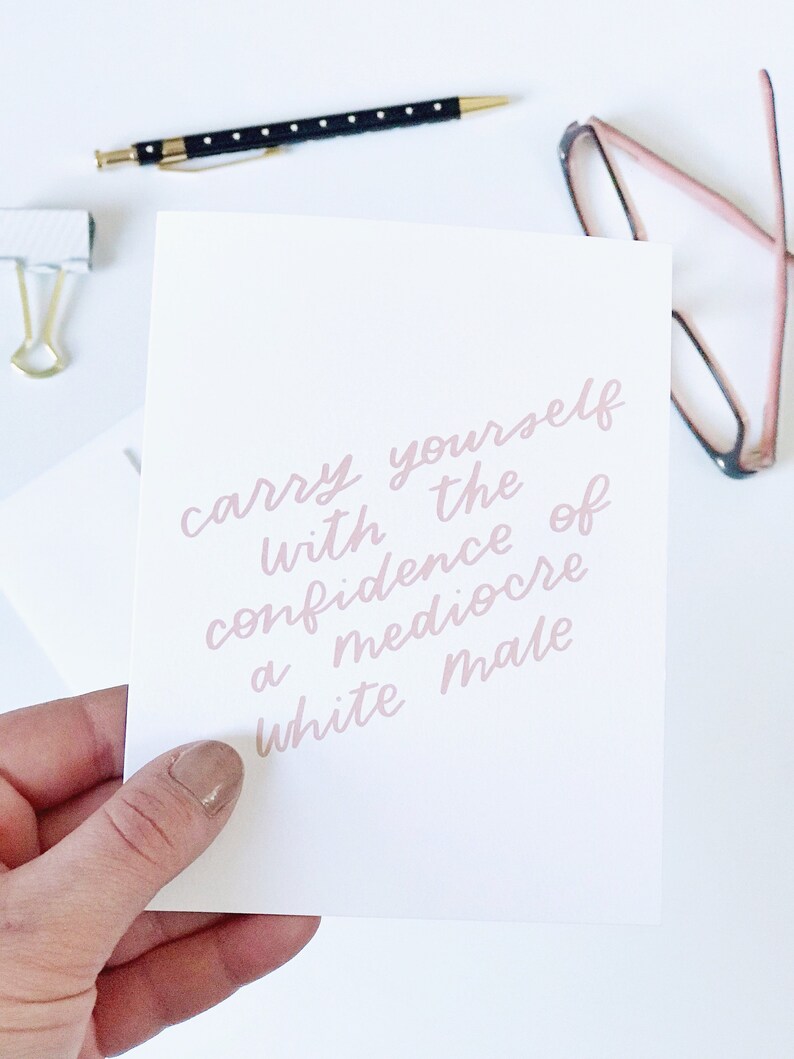 carry yourself
with the
confidence of
a mediocre
white male